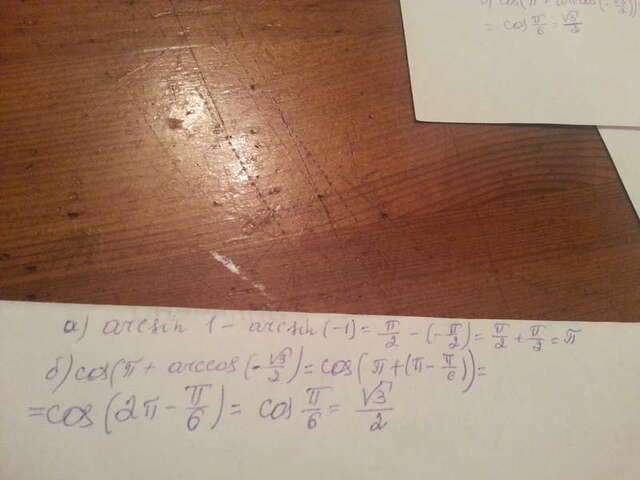 б) cos(π + arccos(-√3/2))
= cos π/6 = √3/2
а) arcsin 1 - arcsin(-1) = π/2 - (-π/2) = π/2 + π/2 = π
б) cos(π + arccos(-√3/2) = cos(π + (π - π/6)) =
= cos(2π - π/6) = cos π/6 = √3/2